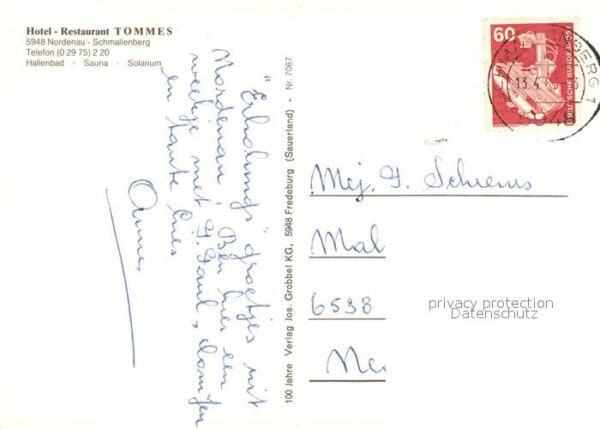 Hotel - Restaurant TOMMES
5948 Nordenau - Schmallenberg
Telefon (0 29 75) 2 20
Hallenbad · Sauna · Solarium
"Erholungs" groetjes uit
Nordenau! Ben hier een
weekje met F. Paul,
en tante Cries
Annes
100 Jahre Verlag Jos. Grobbel KG, 5948 Fredeburg (Sauerland) - Nr. 7067
60
DEUTSCHE BUNDESPOST
13.4.
Mej. F. Schreurs
Mal
6538
Ne
privacy protection
Datenschutz